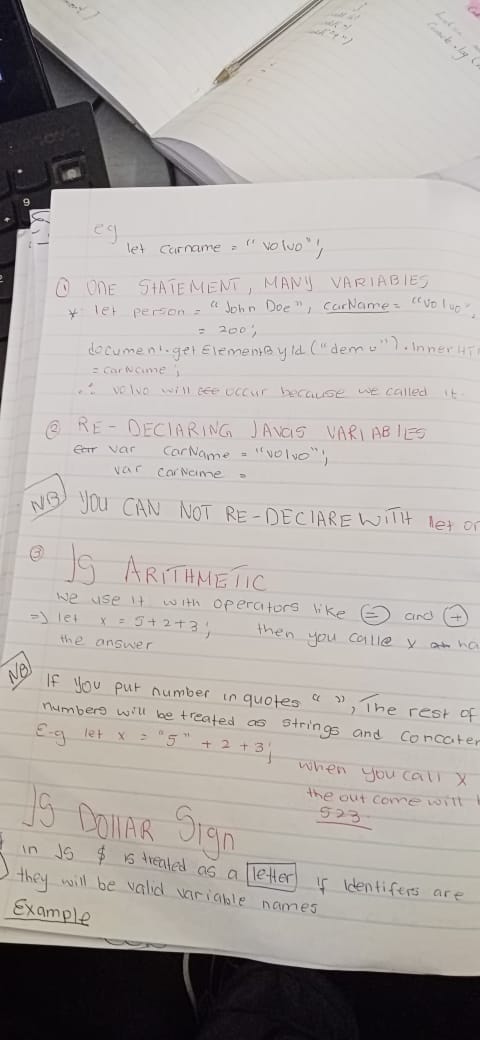 eg
let carname = "volvo";
① ONE STATEMENT, MANY VARIABLES
* let person = "John Doe", carName = "volvo",
= 200;
document.getElementById("demo").InnerHT
= carName;
∴ volvo will occur because we called it.
② RE-DECLARING JAVAS VARIABLES
var carName = "volvo";
var carName =
NB YOU CAN NOT RE-DECLARE WITH let or
③ JS ARITHMETIC
We use it with operators like (=) and (+)
=> let x = 5+2+3; then you calle x
the answer
NB If you put number in quotes " ", The rest of
numbers will be treated as strings and concaten
E-g let x = "5" + 2 + 3;
when you call x
the out come will
523
JS DOLLAR Sign
in JS $ is treated as a letter if Identifers are
they will be valid variable names
Example